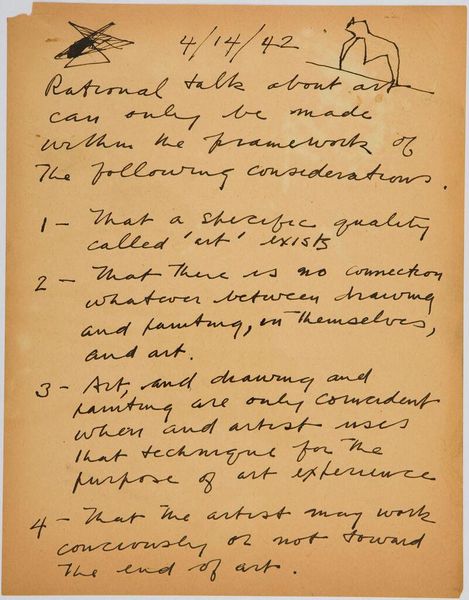 4/14/42
Rational talk about art
can only be made
within the framework of
the following considerations.
1 – That a specific quality
called 'art' exists
2 – That there is no connection
whatever between drawing
and painting, in themselves,
and art.
3 – Art, and drawing and
painting are only coincident
when and artist uses
that technique for the
purpose of art experience
4 – That the artist may work
conciously or not toward
the end of art.